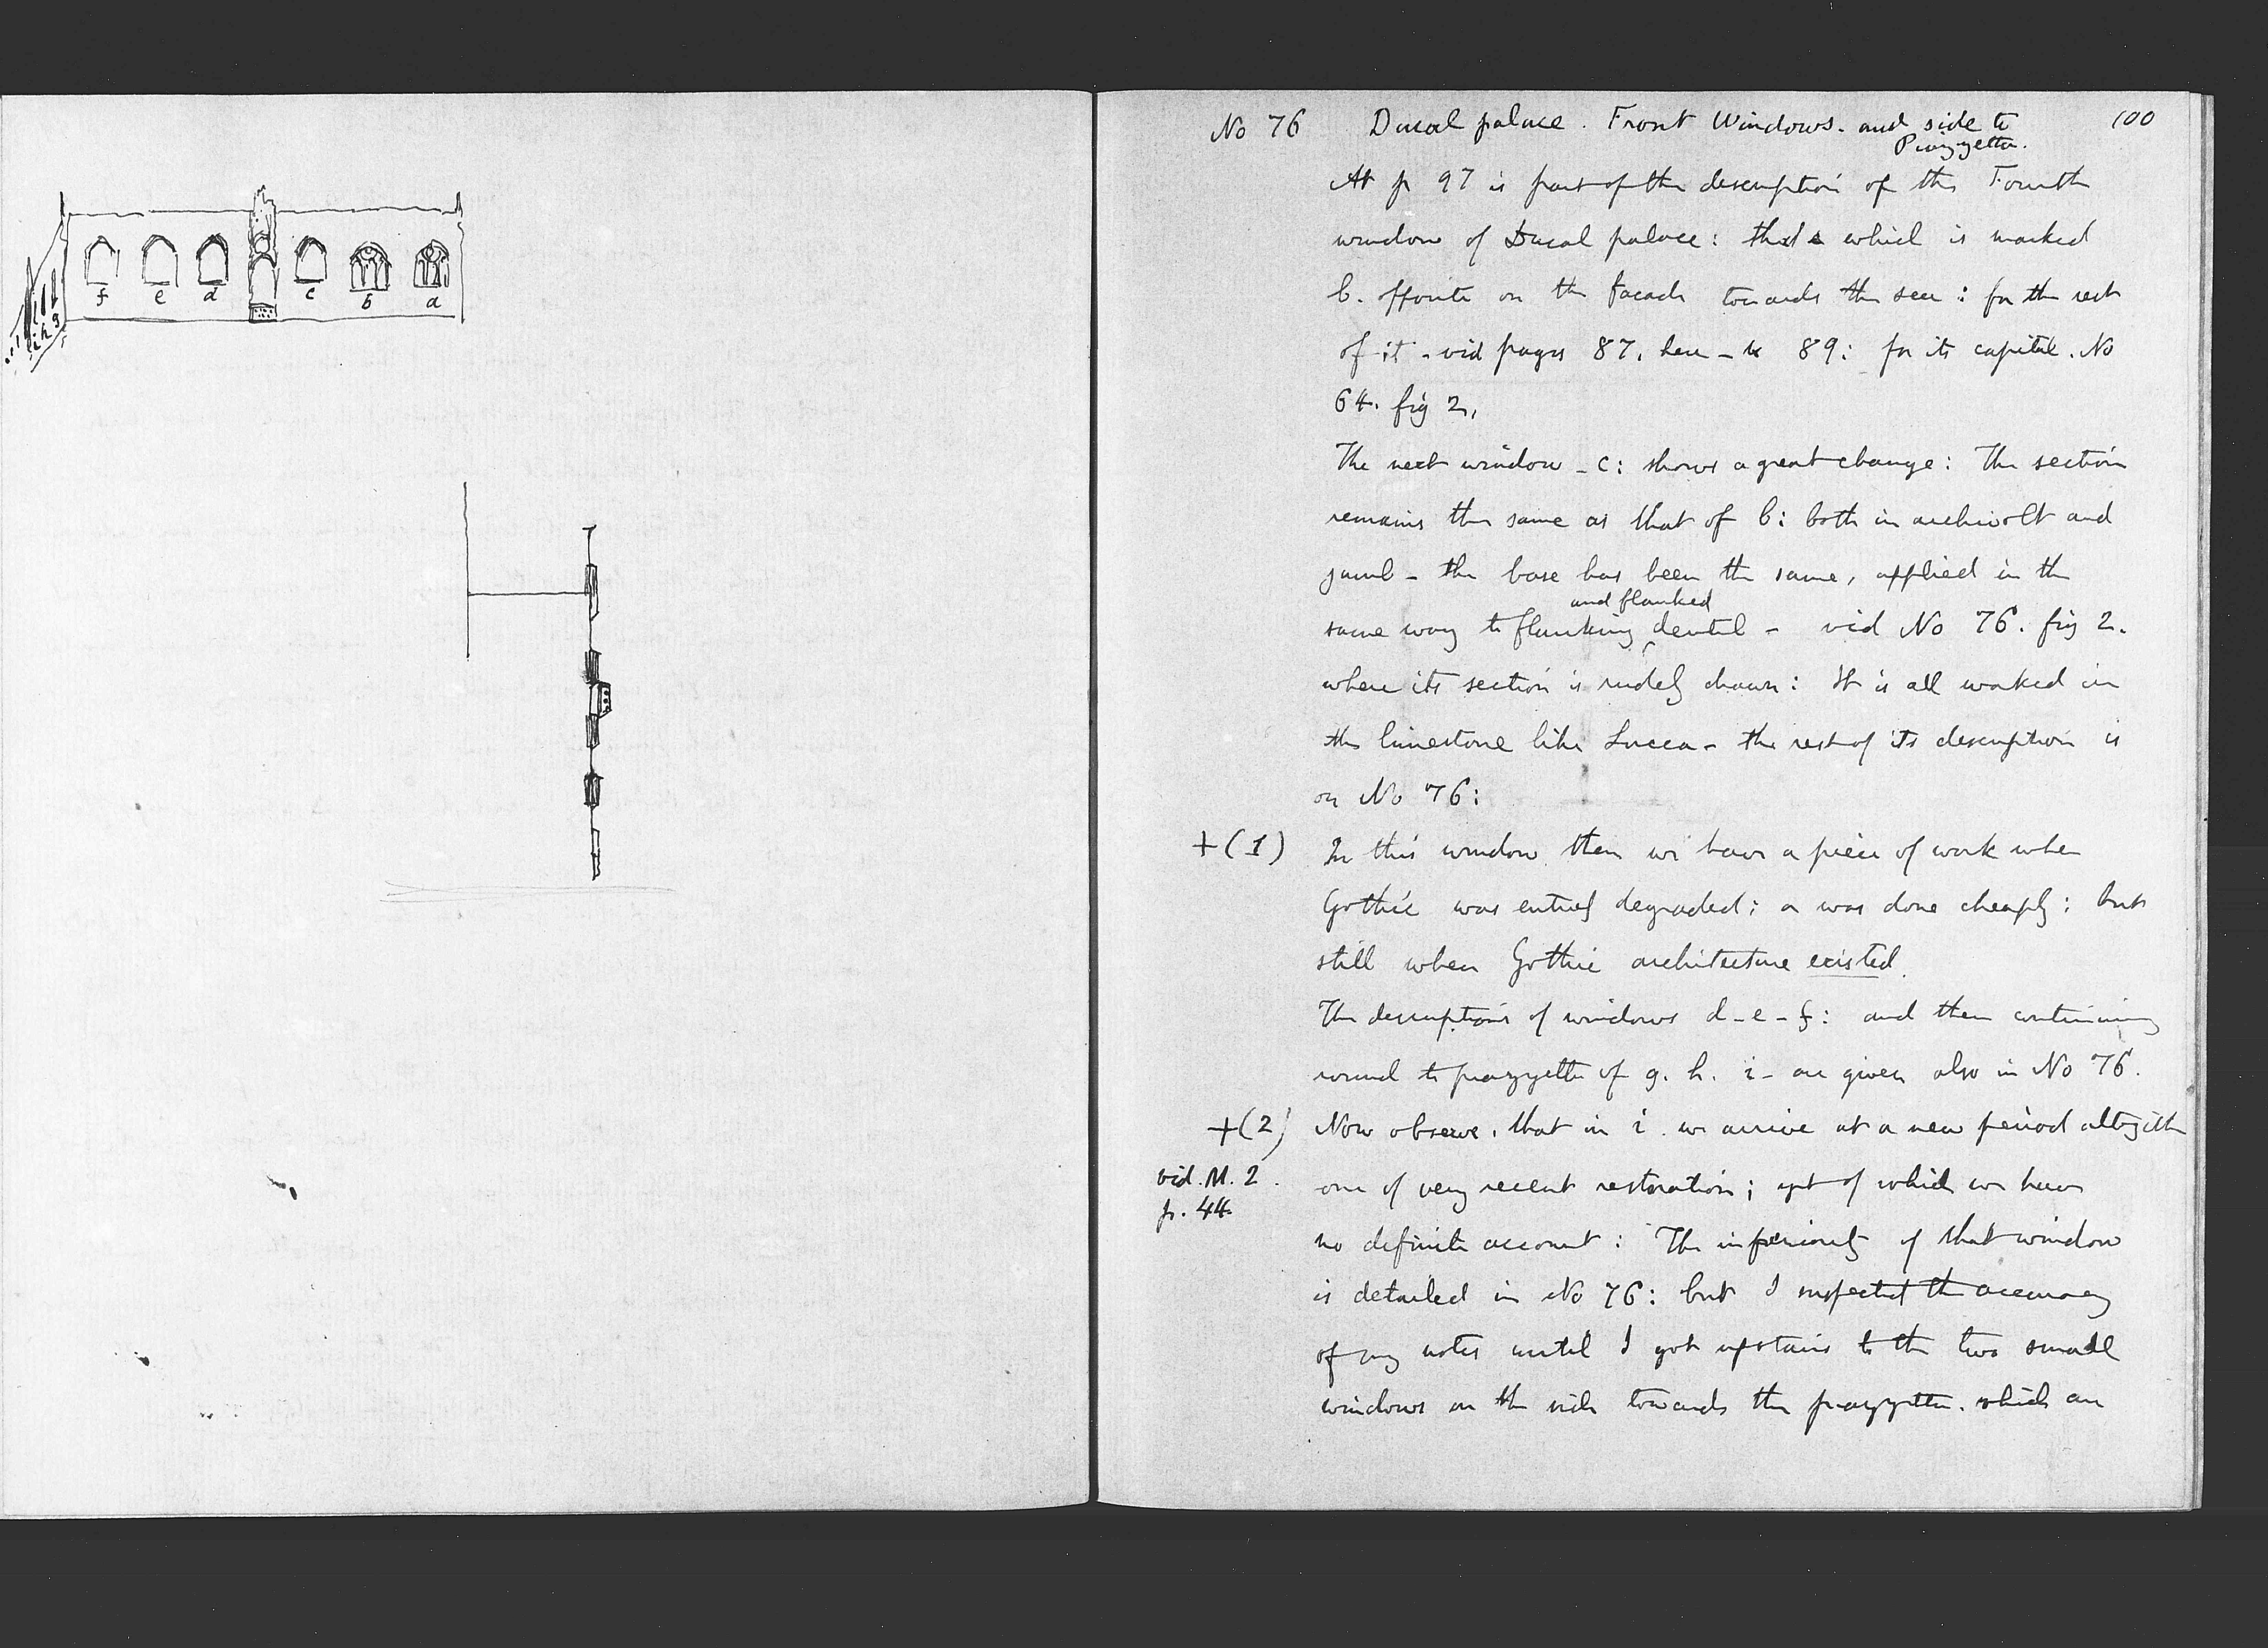 f e d c b a
i h g
No 76 Ducal palace. Front Windows. and side to 100
Piazzetta.
At p 97 is part of the description of the Fourth
window of Ducal palace: that which is marked
b. opposite on the facade towards the sea: for the rest
of it. vid pages 87, here - to 89: for its capital. No
64. fig 2,
The next window - c: shows a great change: The section
remains the same as that of b: both in archivolt and
jamb - the base has been the same, applied in the
and flanked
same way to flanking dentil - vid No 76. fig 2.
where its section is rudely drawn: It is all worked in
the limestone like Lucca - the rest of its description is
on No 76:
+(1) In this window then we have a piece of work when
Gothic was entirely degraded: or was done cheaply: but
still when Gothic architecture existed.
The descriptions of windows d-e-f: and then continuing
round to piazzetta of g. h. i- are given also in No 76.
+(2) Now observe, that in i. we arrive at a new period altogether
vid. M. 2.
p. 44.
one of very recent restoration; yet of which we have
no definite account: The inferiority of that window
is detailed in No 76: but I suspected the accuracy
of my notes until I got upstairs to the two small
windows on the side towards the piazzetta. which are